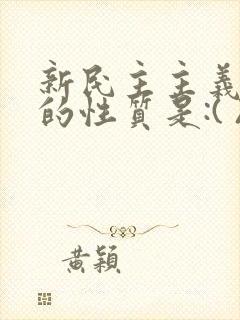 新民主主義
的性質是:(
黃穎